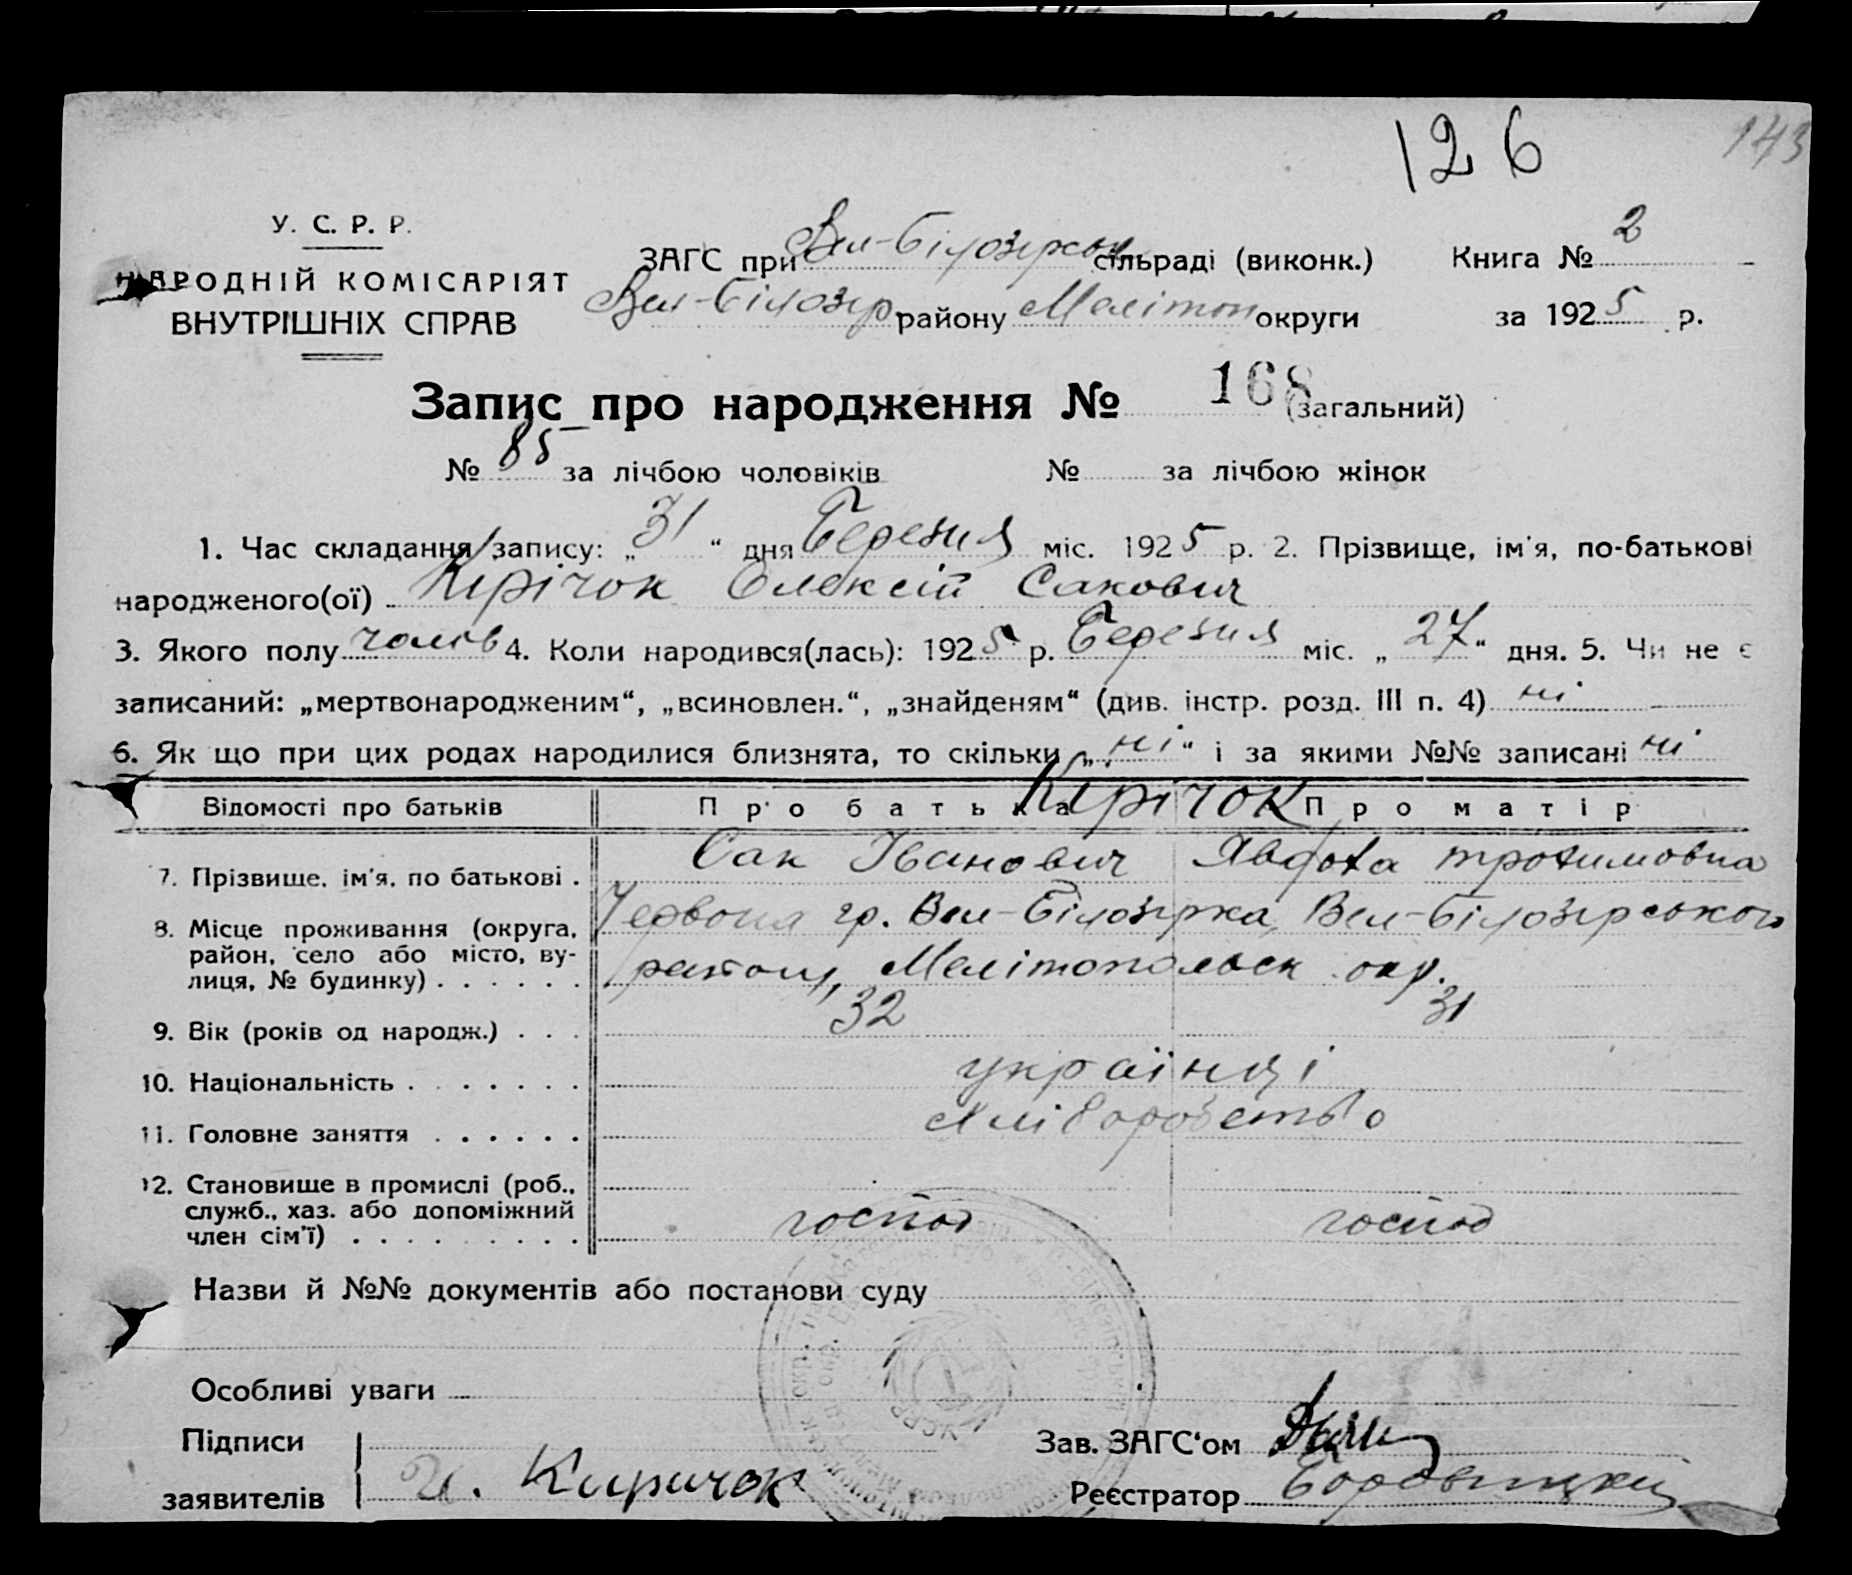 126 143
У. С. Р. Р.
НАРОДНІЙ КОМІСАРІЯТ
ВНУТРІШНІХ СПРАВ
ЗАГС при Вел-Білозірськ сільраді (виконк.) Книга № 2
Вел-Білозір району Мелітоп округи за 1925 р.
Запис про народження № 168 (загальний)
№ 85 за лічбою чоловіків № за лічбою жінок
1. Час складання запису: „31“ дня Березня міс. 1925 р. 2. Прізвище, ім'я, по-батькові
народженого(ої) Кірічок Олексій Сакович
3. Якого полу чолов 4. Коли народився(лась): 1925 р. Березня міс. „27“ дня. 5. Чи не є
записаний: „мертвонародженим“, „всиновлен.“, „знайденям“ (див. інстр. розд. III п. 4) ні
6. Як що при цих родах народилися близнята, то скільки „ні“ і за якими №№ записані ні
Відомості про батьків Про батька Кірічок Про матір
7. Прізвище, ім'я, по батькові . Сак Іванович Явдоха трохимовна
8. Місце проживання (округа, Червона гр. Вел-Білозірка, Вел-Білозірського
район, село або місто, ву- району, Мелітопольськ окр.
лиця, № будинку) . . . . . .
9. Вік (років од народж.) . . . 32 31
10. Національність . . . . . . . українці
11. Головне заняття . . . . . . хліборобство
12. Становище в промислі (роб.,
служб., хаз. або допоміжний господ господ
член сім'ї) . . . . . . . . .
Назви й №№ документів або постанови суду
Особливі уваги
Підписи Зав. ЗАГС'ом
заявителів И. Киричок Реєстратор